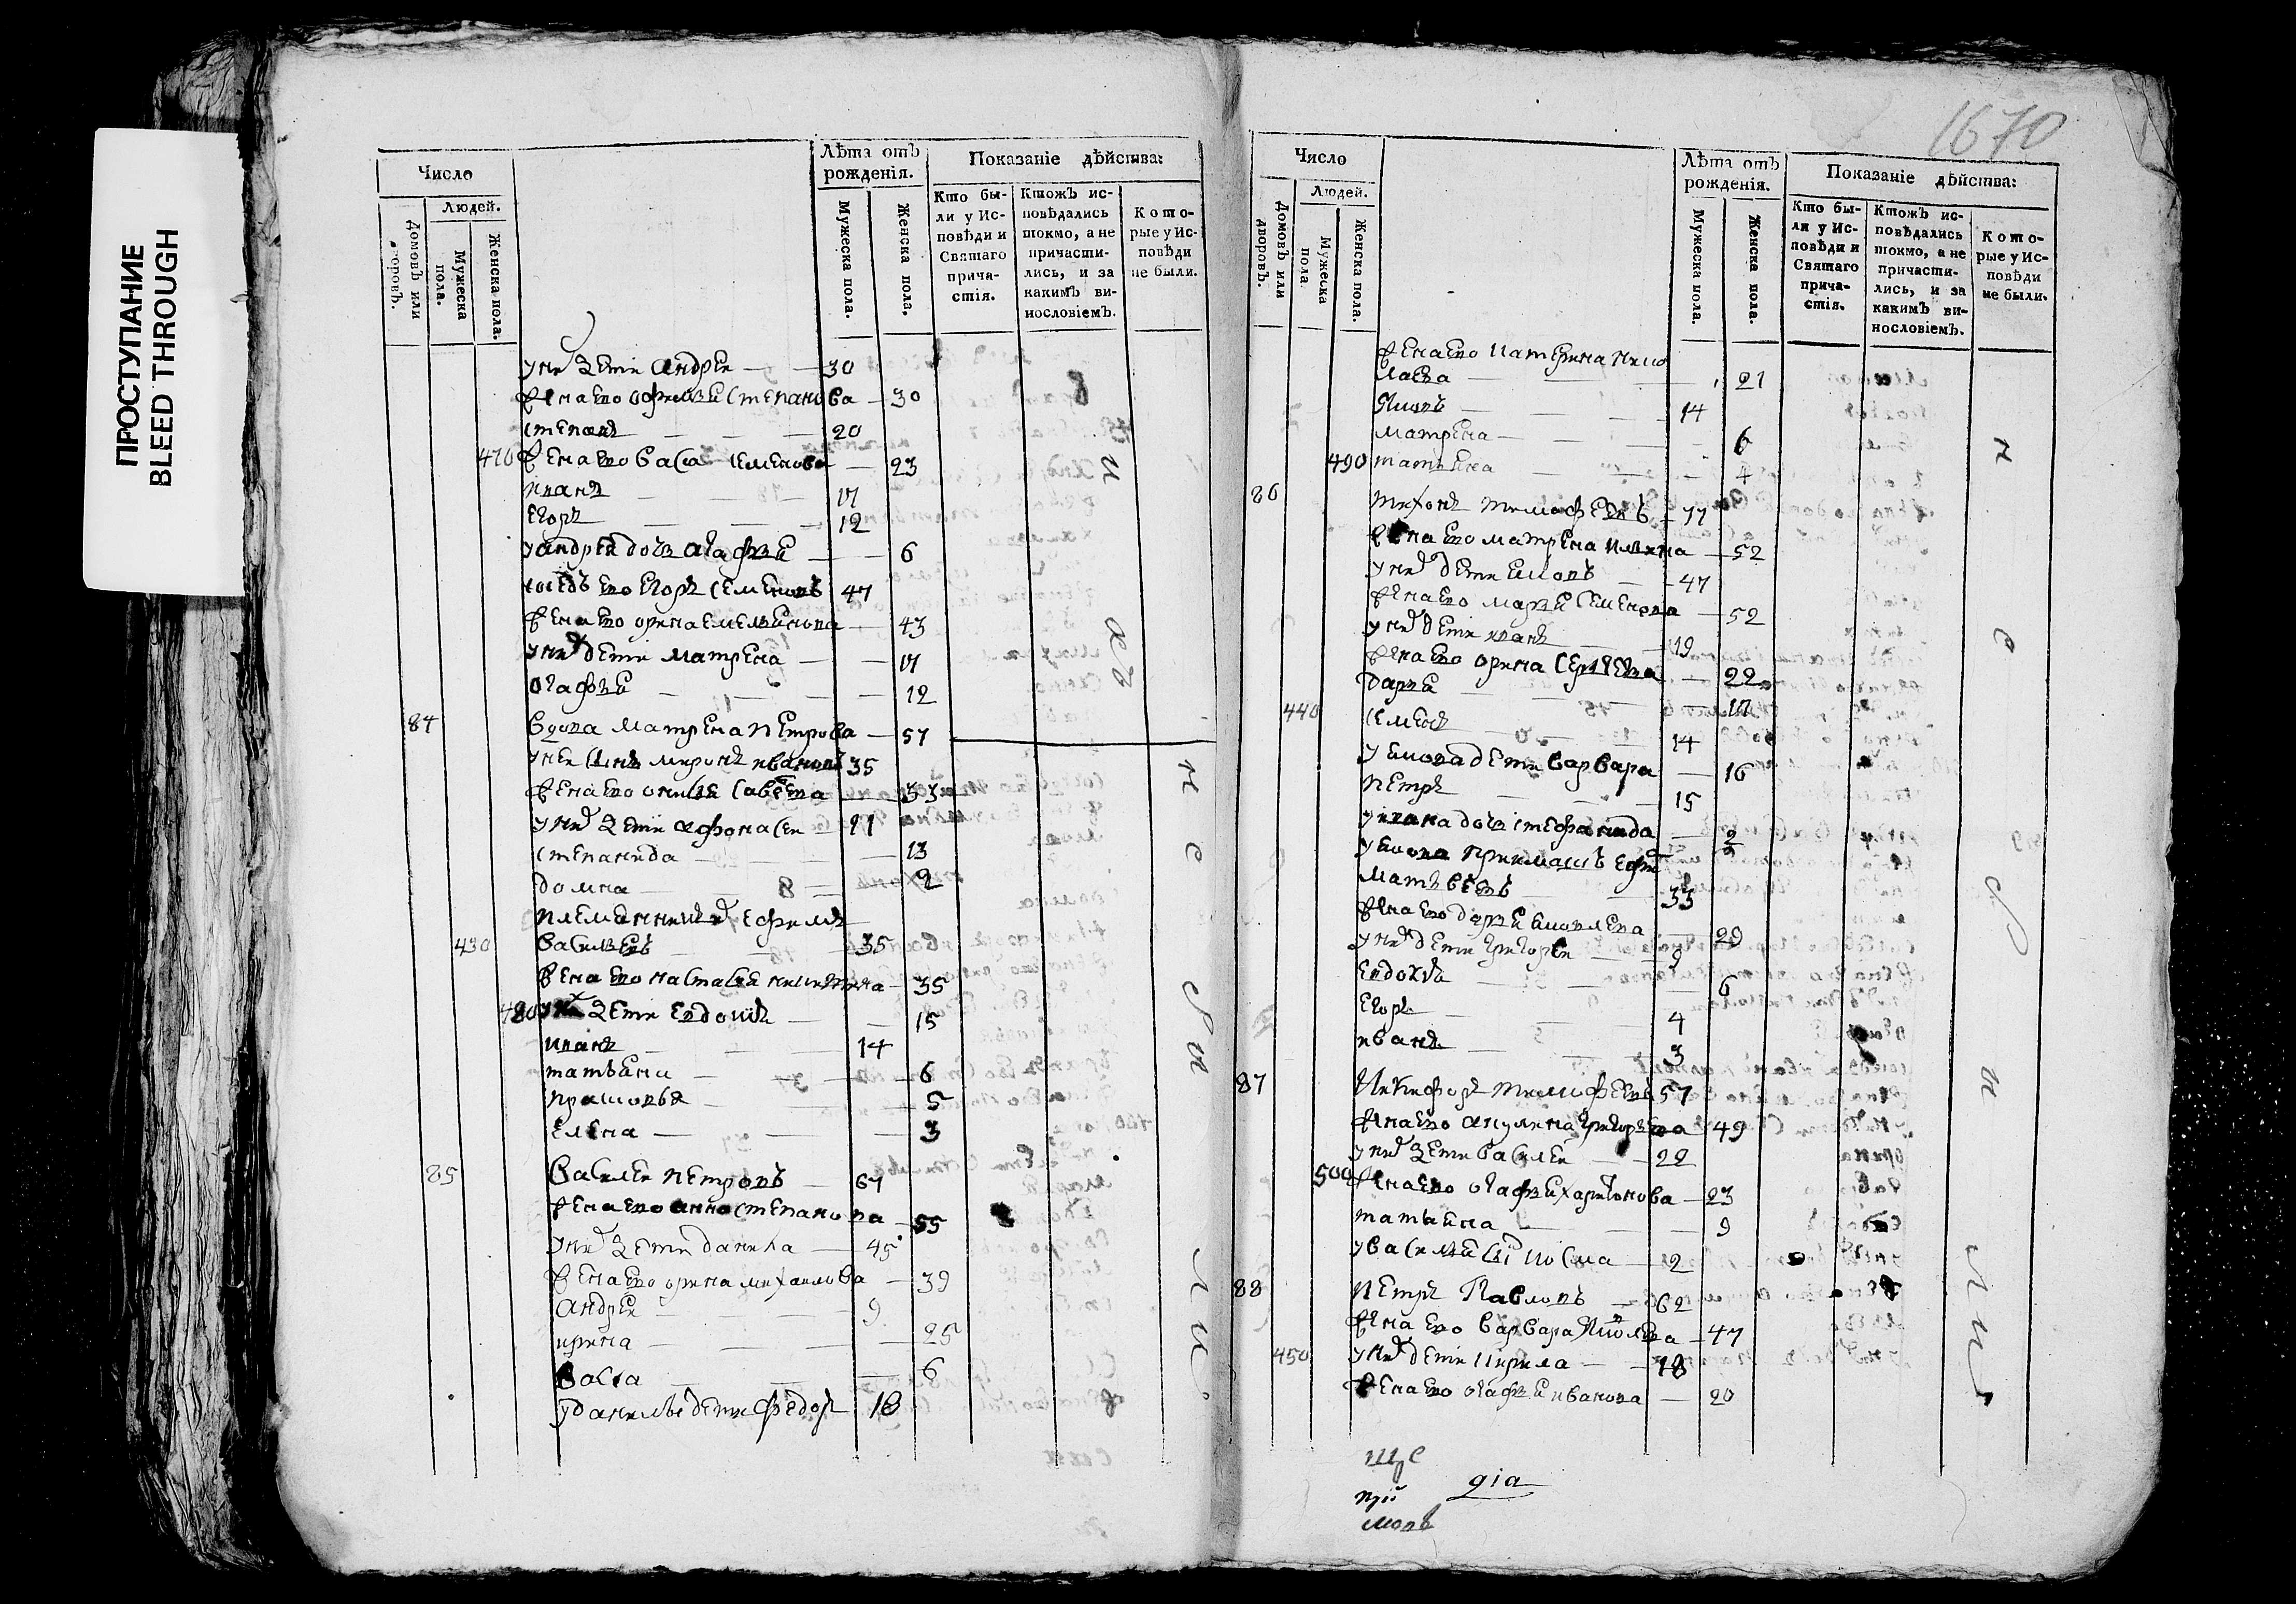 ПРОСТУПАНИЕ
BLEED THROUGH
1670
Число
Людей.
Домовъ или дворовъ.
Мужеска пола.
Женска пола.
Лѣта отъ рожденія.
Мужеска пола.
Женска пола.
Показаніе дѣйства:
Кто бы-
ли у Ис-
повѣди и
Святаго
прича-
стія.
Ктожъ ис-
повѣдались
токмо, а не
причасти-
лись, и за
какимъ ви-
нословіемъ.
Кото-
рые у Ис-
повѣди
не были.
у них дети андреи 30
жена ево софия степанова 30
степанъ 20
470 жена ево васа семенова 23
иванъ 17
егоръ 12
у андрея дочь агафья 6
егоръ семеновъ 47
жена ево орина емельянова 43
у них дети матрена 17
огафья 12
84 вдова матрена петрова 57
у нея сынъ миронъ ивановъ 35
жена ево савева 33
у них дети афонасеи 11
степанида 13
домна 2
племянникъ ефимъ
430 васильевъ 35
жена ево настасья никитина 35
480 дети евдокия 15
иванъ 14
татьяна 6
прасковья 5
елена 3
85 василеи петровъ 67
жена ево анна степанова 55
у них дети данила 45
жена ево орина михаилова 39
андреи 9
ирина 25
васса 6
у данилы дети федоръ 18
Число
Людей.
Домовъ или дворовъ.
Мужеска пола
Женска пола.
Лѣта отъ рожденія.
Мужеска пола.
Женска пола.
Показаніе дѣйства:
Кто бы-
ли у Ис-
повѣди и
Святаго
прича-
стія.
Ктожъ ис-
повѣдались
токмо, а не
причасти-
лись, и за
какимъ ви-
нословіемъ.
Кото-
рые у Ис-
повѣди
не были.
жена ево катерина нико
лаева 21
яковъ 14
матрена 6
490 татьяна 4
86 тихонъ тимофеевъ 77
жена ево матрена ильина 52
у них дети 47
жена ево марья семенова 52
у них дети иванъ 19
жена ево орина сергеева 22
дарья 17
440 семенъ 14
дети варвара 16
петръ 15
у ивана дочь стефанида 2
примакъ
матвеевъ 33
жена ево дарья яковлева 29
у них дети григореи 9
евдокия 6
егоръ 4
иванъ 3
87 никифоръ тимофеевъ 57
жена ево акулина григорьева 49
у них дети василеи 22
500 жена ево огафья харитонова 23
татьяна 9
у василья сынъ косма 2
88 петръ павловъ 62
жена ево варвара яковлева 47
450 у них дети кирила 18
жена ево огафья иванова 20